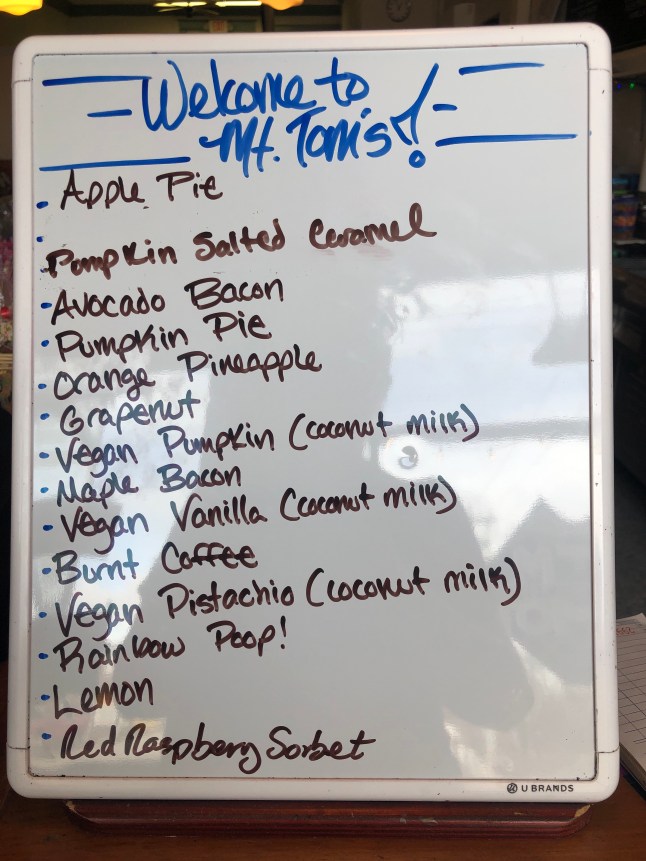 Welcome to
Mt. Tom's!
• Apple Pie
• Pumpkin Salted Caramel
• Avocado Bacon
• Pumpkin Pie
• Orange Pineapple
• Grapenut
• Vegan Pumpkin (coconut milk)
• Maple Bacon
• Vegan Vanilla (coconut milk)
• Burnt Coffee
• Vegan Pistachio (coconut milk)
• Rainbow Poop!
• Lemon
• Red Raspberry Sorbet
U BRANDS